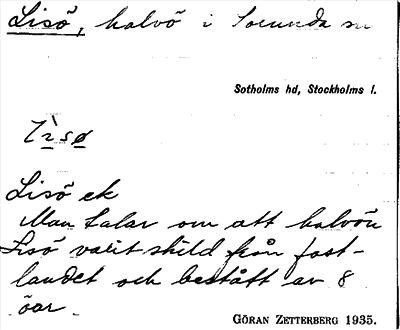 Lisö, halvö i Sorunda sn
Sotholms hd, Stockholms l.
Lisö ek
Man talar om att halvön
Lisö varit skild från fast-
landet och bestått av 8
öar.
GÖRAN ZETTERBERG 1935.